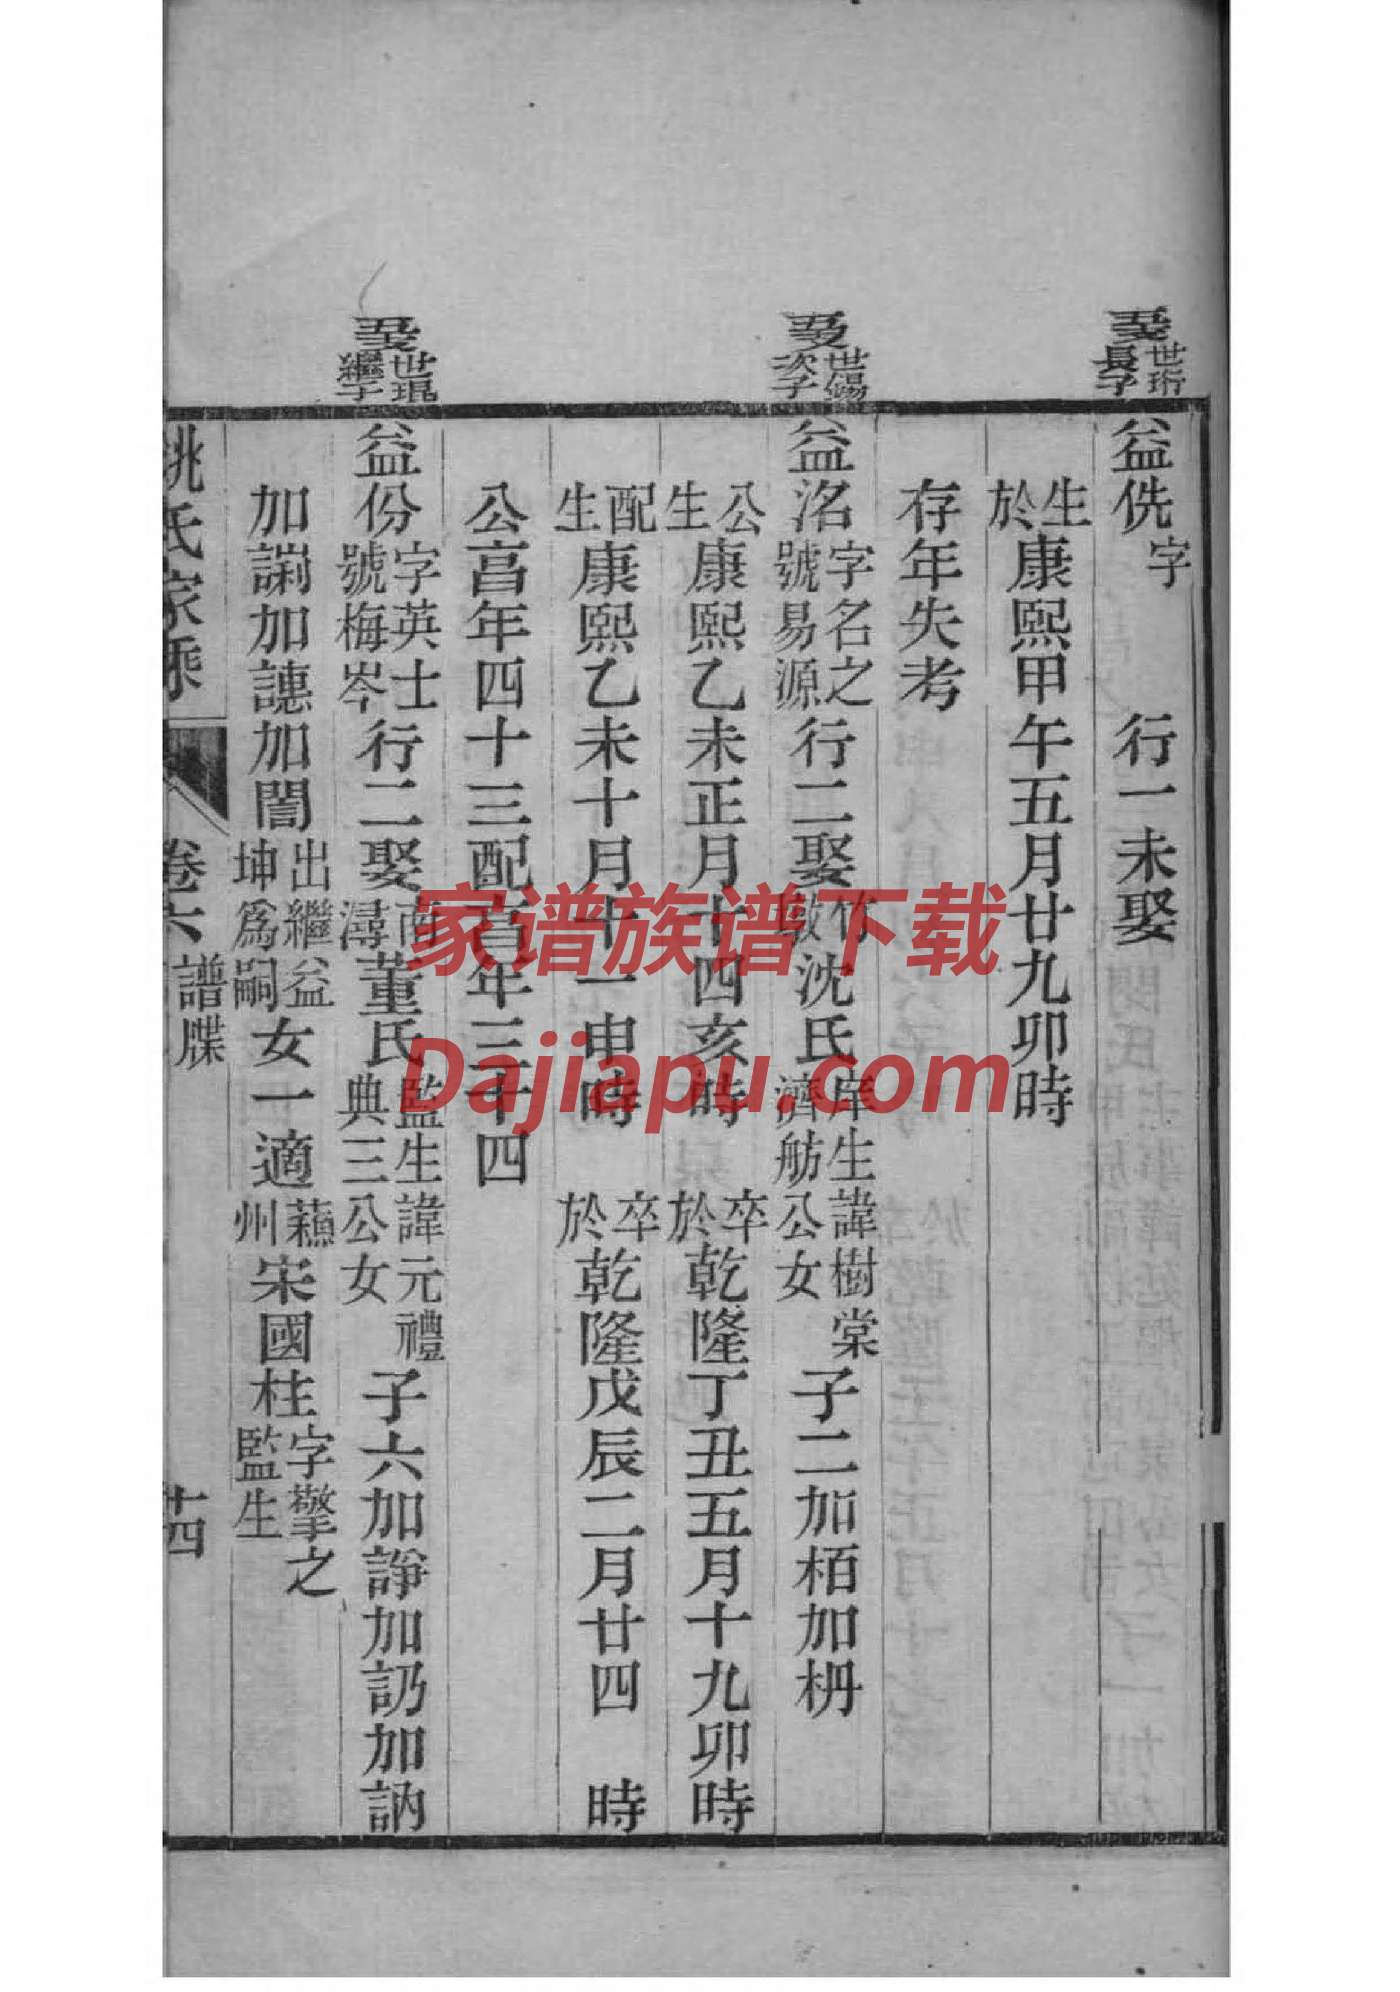 世珩長子
益侁字 行一未娶
生於康熙甲午五月廿九卯時
存年失考
世傷次子
益洺字名之號易源行二娶竹墩沈氏庠生諱樹棠濟舫公女子二加栢加枬
公生康熙乙未正月十四亥時 卒於乾隆丁丑五月十九卯時
配生康熙乙未十月十一申時 卒於乾隆戊辰二月廿四 時
公享年四十三配享年三十四
世琨繼子
益份字英士號梅岑行二娶南潯董氏監生諱元禮典三公女子六加諍加訒加訥
加謝加譓加誾出繼益坤為嗣女一適蘇州宋國柱字擎之監生
姚氏家乘 卷六 譜牒 十四
家谱族谱下载
Dajiapu.com